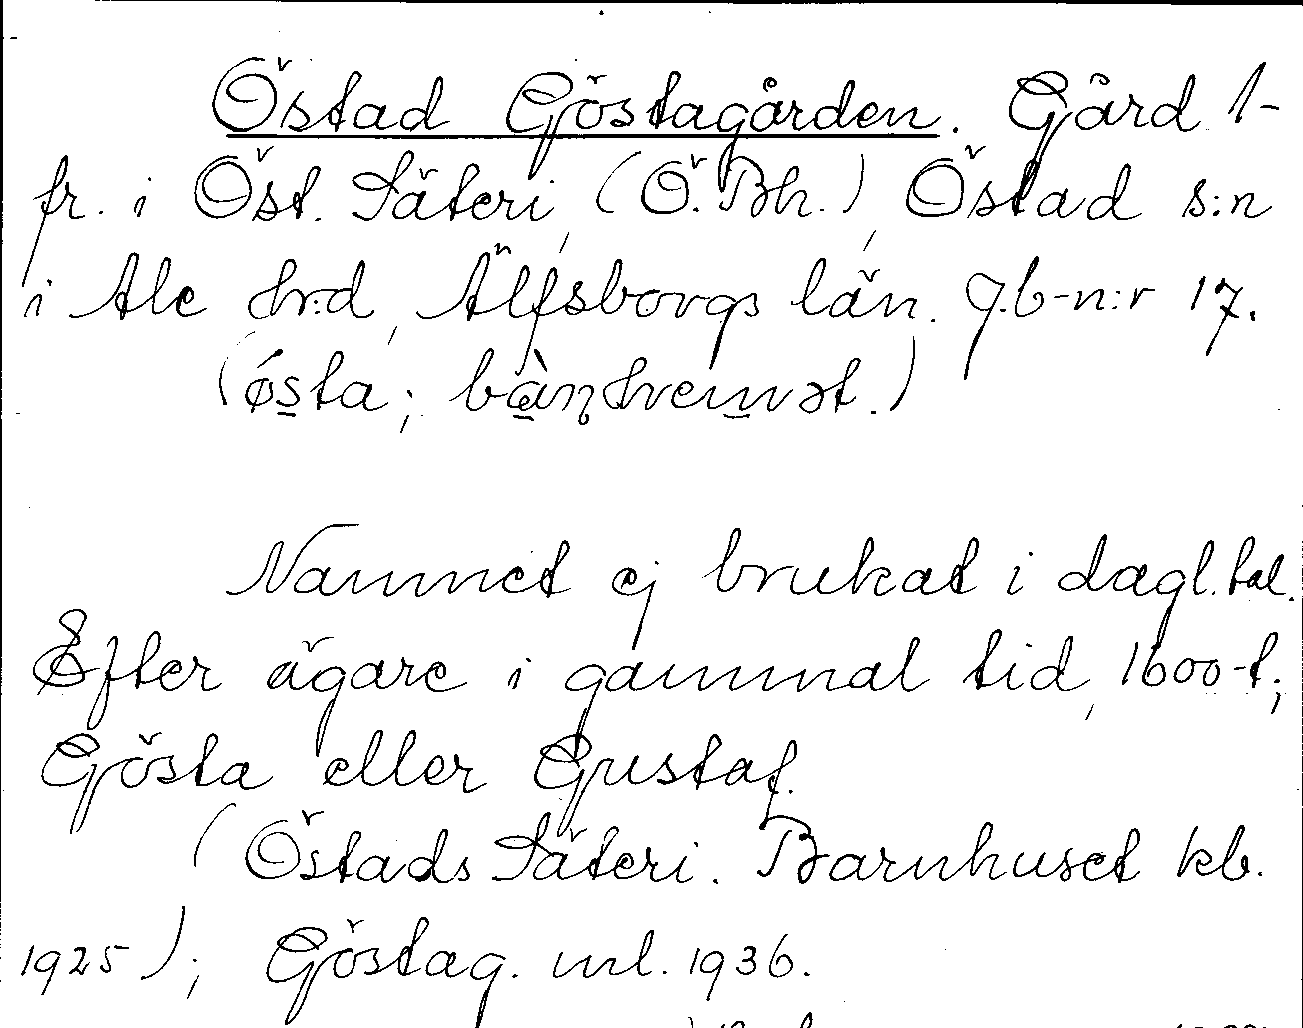 Östad Göstagården. Gård 1-
fr. i Öst. Säteri, (Ö. Bh.), Östad s:n
i Ale hrd, Älfsborgs län. J.b-n:r 17.
(östa; 
Namnet ej brukat i dagl. tal.
Efter ägare i gammal tid, 1600-t;
Gösta eller Gustaf.
(Östads Säteri. Barnhuset kb.
1925); Göstag. ml. 1936.